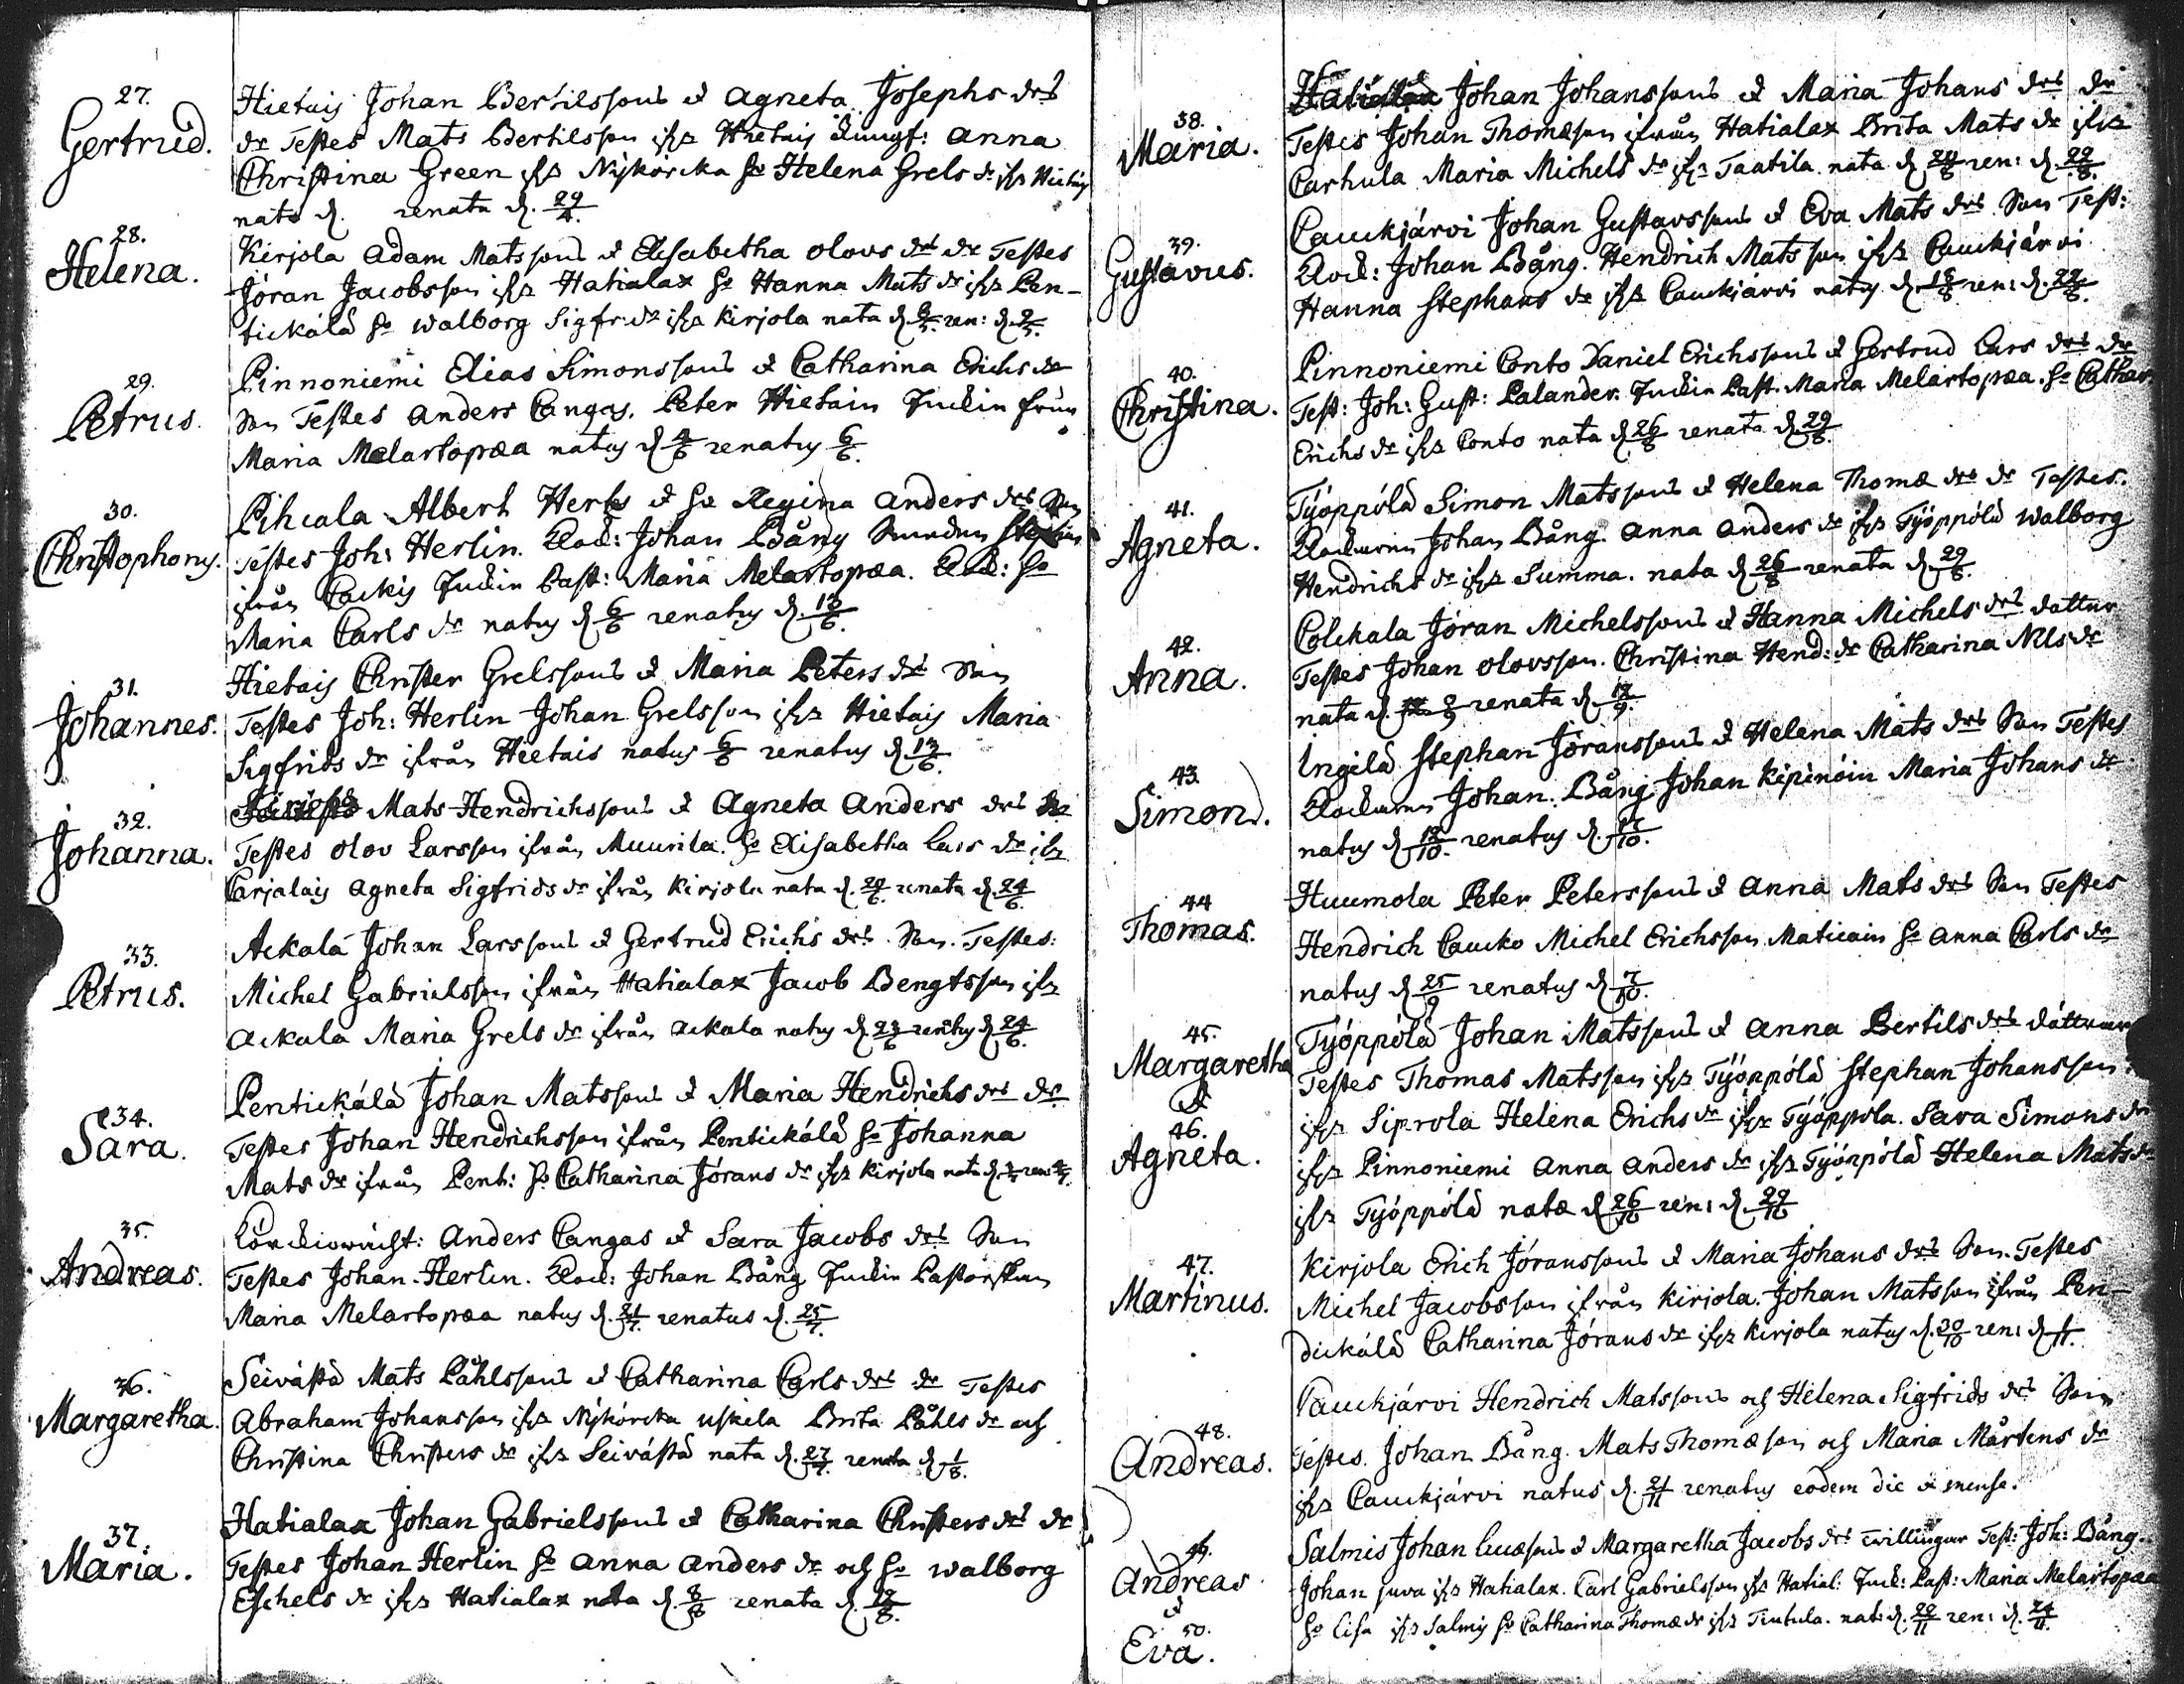 27.
Gertrud.
Hietais Johan Bertilssons et Agneta Josephs drs
dr Testes Mats Bertilsson ifrå Hietais Jungf: Anna
Christina Green ifrå Nykörcka h: Helena Grels dr ifrå Hietais
nata d. renata d. 29/4.
28.
Helena.
Kirjola Adam Matssons et Elisabetha Olovs drs dr Testes
Jöran Jacobsson ifrå Hatialax h: Hanna Mats dr ifrå Pen-
tickälä h: Walborg Sigfr: dr ifrå Kirjola nata d. ren: d.
29.
Petrus.
Pinnoniemi Elias Simonssons et Catharina Erichs dr
Son Testes Anders Cangas. Peter Hietain
Maria Melartopæa natus d 4/6 renatus 6/6.
30.
Christophorus.
Pihcala Albert Herls et h: Regina Anders drs Son
Testes Joh: Herlin. Clock: Johan Bång
ifrån Packis Past: Maria Melartopæa. Clock: h:
Maria Carls dr natus d 6/6 renatus d. 13/6.
31.
Johannes.
Hietais Christer Grelssons et Maria Peters drs Son
Testes Joh: Herlin Johan Grelsson ifrå Hietais Maria
Sigfrids dr ifrån Hietais natus 6/6 renatus d. 13/6.
32.
Johanna.
Mats Hendrichssons et Agneta Anders drs dr
Testes Olov Larsson ifrån Muurila. h: Elisabetha Lars dr ifr
Carjalais Agneta Sigfrids dr ifrån Kirjola nata d. renata d. 24/6
33.
Petrus.
Ackala Johan Larssons et Gertrud Erichs drs Son. Testes:
Michel Gabrielsson ifrån Hatialax Jacob Bengtsson ifr
Ackala Maria Grels dr ifrån Ackala natus d 23/6 renatus d 24/6.
34.
Sara.
Pentickälä Johan Matssons et Maria Hendrichs drs dr
Testes Johan Hendrichsson ifrån Pentickälä h: Johanna
Mats dr ifrån Pent: h: Catharina Jörans dr ifrå Kirjola nata d. ren:
35.
Andreas.
Anders Cangas et Sara Jacobs drs Son
Testes Johan Herlin. Clock: Johan Bång Pastorskan
Maria Melartopæa natus d. 21/7. renatus d. 25/7.
36.
Margaretha.
Seivästö Mats Påhlssons et Catharina Carls drs dr Testes
Abraham Johansson ifrå Nykörcka Uskela Brita Påhls dr och
Christina Christers dr ifrå Seivästö nata d. 27/7. renata d 1/8.
37.
Maria.
Hatialax Johan Gabrielssons et Catharina Christers drs dr
Testes Johan Herlin h: Anna Anders dr och h: Walborg
Eschels dr ifrå Hatialax nata d. 8/8 renata d. 12/8.
38.
Maria.
Hatialax Johan Johanssons et Maria Johans drs dr
Testes Johan Thomæson ifrån Hatialax Brita Mats dr ifrå
Carhula Maria Michels dr ifr Taatila nata d. ren: d. 29/8.
39.
Gustavus.
Cauckjärvi Johan Gustavssons et Eva Mats drs Son Test:
Clock: Johan Bång. Hendrich Matsson ifrå Cauckjärvi
Hanna Stephans dr ifrå Cauckjärvi natus d. 18/8 ren: d. 22/8.
40.
Christina.
Pinnoniemi Conto Daniel Erichssons et Gertrud Lars drs dr
Test: Joh: Gust: Palander. Past. Maria Melartopæa. h: Cathar
Erichs dr ifrå Conto nata d 26/8 renata d. 29/8.
41.
Agneta.
Työppölä Simon Matssons et Helena Thomæ drs dr Testes.
Clockaren Johan Bång. Anna Anders dr ifrå Työppölä Walborg
Hendrichs dr ifrå Summa. nata d 26/8 renata d 29/8.
42.
Anna.
Colckala Jöran Michelssons et Hanna Michels drs dotter
Testes Johan Olovsson. Christina Hend: dr Catharina Nils dr
nata d. 9/9 renata d. 12/9.
43.
Simon.
Ingilä Stephan Jöranssons et Helena Mats drs Son Testes
Clockaren Johan Bång Johan Kipinöin Maria Johans dr
natus d 12/10. renatus d. 17/10.
44
Thomas.
Huumola Peter Peterssons et Anna Mats drs Son Testes
Hendrich Caucko Michel Erichsson Maticain h: Anna Carls dr
natus d 25/9 renatus d 7/10.
45.
Margaretha
et
46.
Agneta.
Työppölä Johan Matssons et Anna Bertils drs döttrar
Testes Thomas Matsson ifrå Työppölä Stephan Johansson
ifrå Siprola Helena Erichs dr ifrå Työppölä. Sara Simons dr
ifrå Pinnoniemi Anna Anders dr ifrå Työppölä Helena Mats dr
ifr Työppölä natæ d 26/10 ren: d. 29/10
47.
Martinus.
Kirjola Erich Jöranssons et Maria Johans drs Son. Testes
Michel Jacobsson ifrån Kirjola. Johan Matsson ifrån Pen-
dickälä Catharina Jörans dr ifrå Kirjola natus d. 30/10 ren: d 1/11.
48.
Andreas.
Cauckjärvi Hendrich Matssons och Helena Sigfrids drs Son
Testes. Johan Bång. Mats Thomæson och Maria Mårtens dr
ifrå Cauckjärvi natus d. 21/11 renatus eodem die et mense.
49.
Andreas
et
50.
Eva.
Salmis Johan Lucæsons et Margaretha Jacobs drs Twillingar Test: Joh: Bång.
Johan Juva ifrå Hatialax. Carl Gabrielsson ifrå Hatial: Past: Maria Melartopæa
h: Lisa ifrå Salmis h: Catharina Thomæ dr ifrå Tiutula. nat: d. 22/11 ren: d. 24/11.